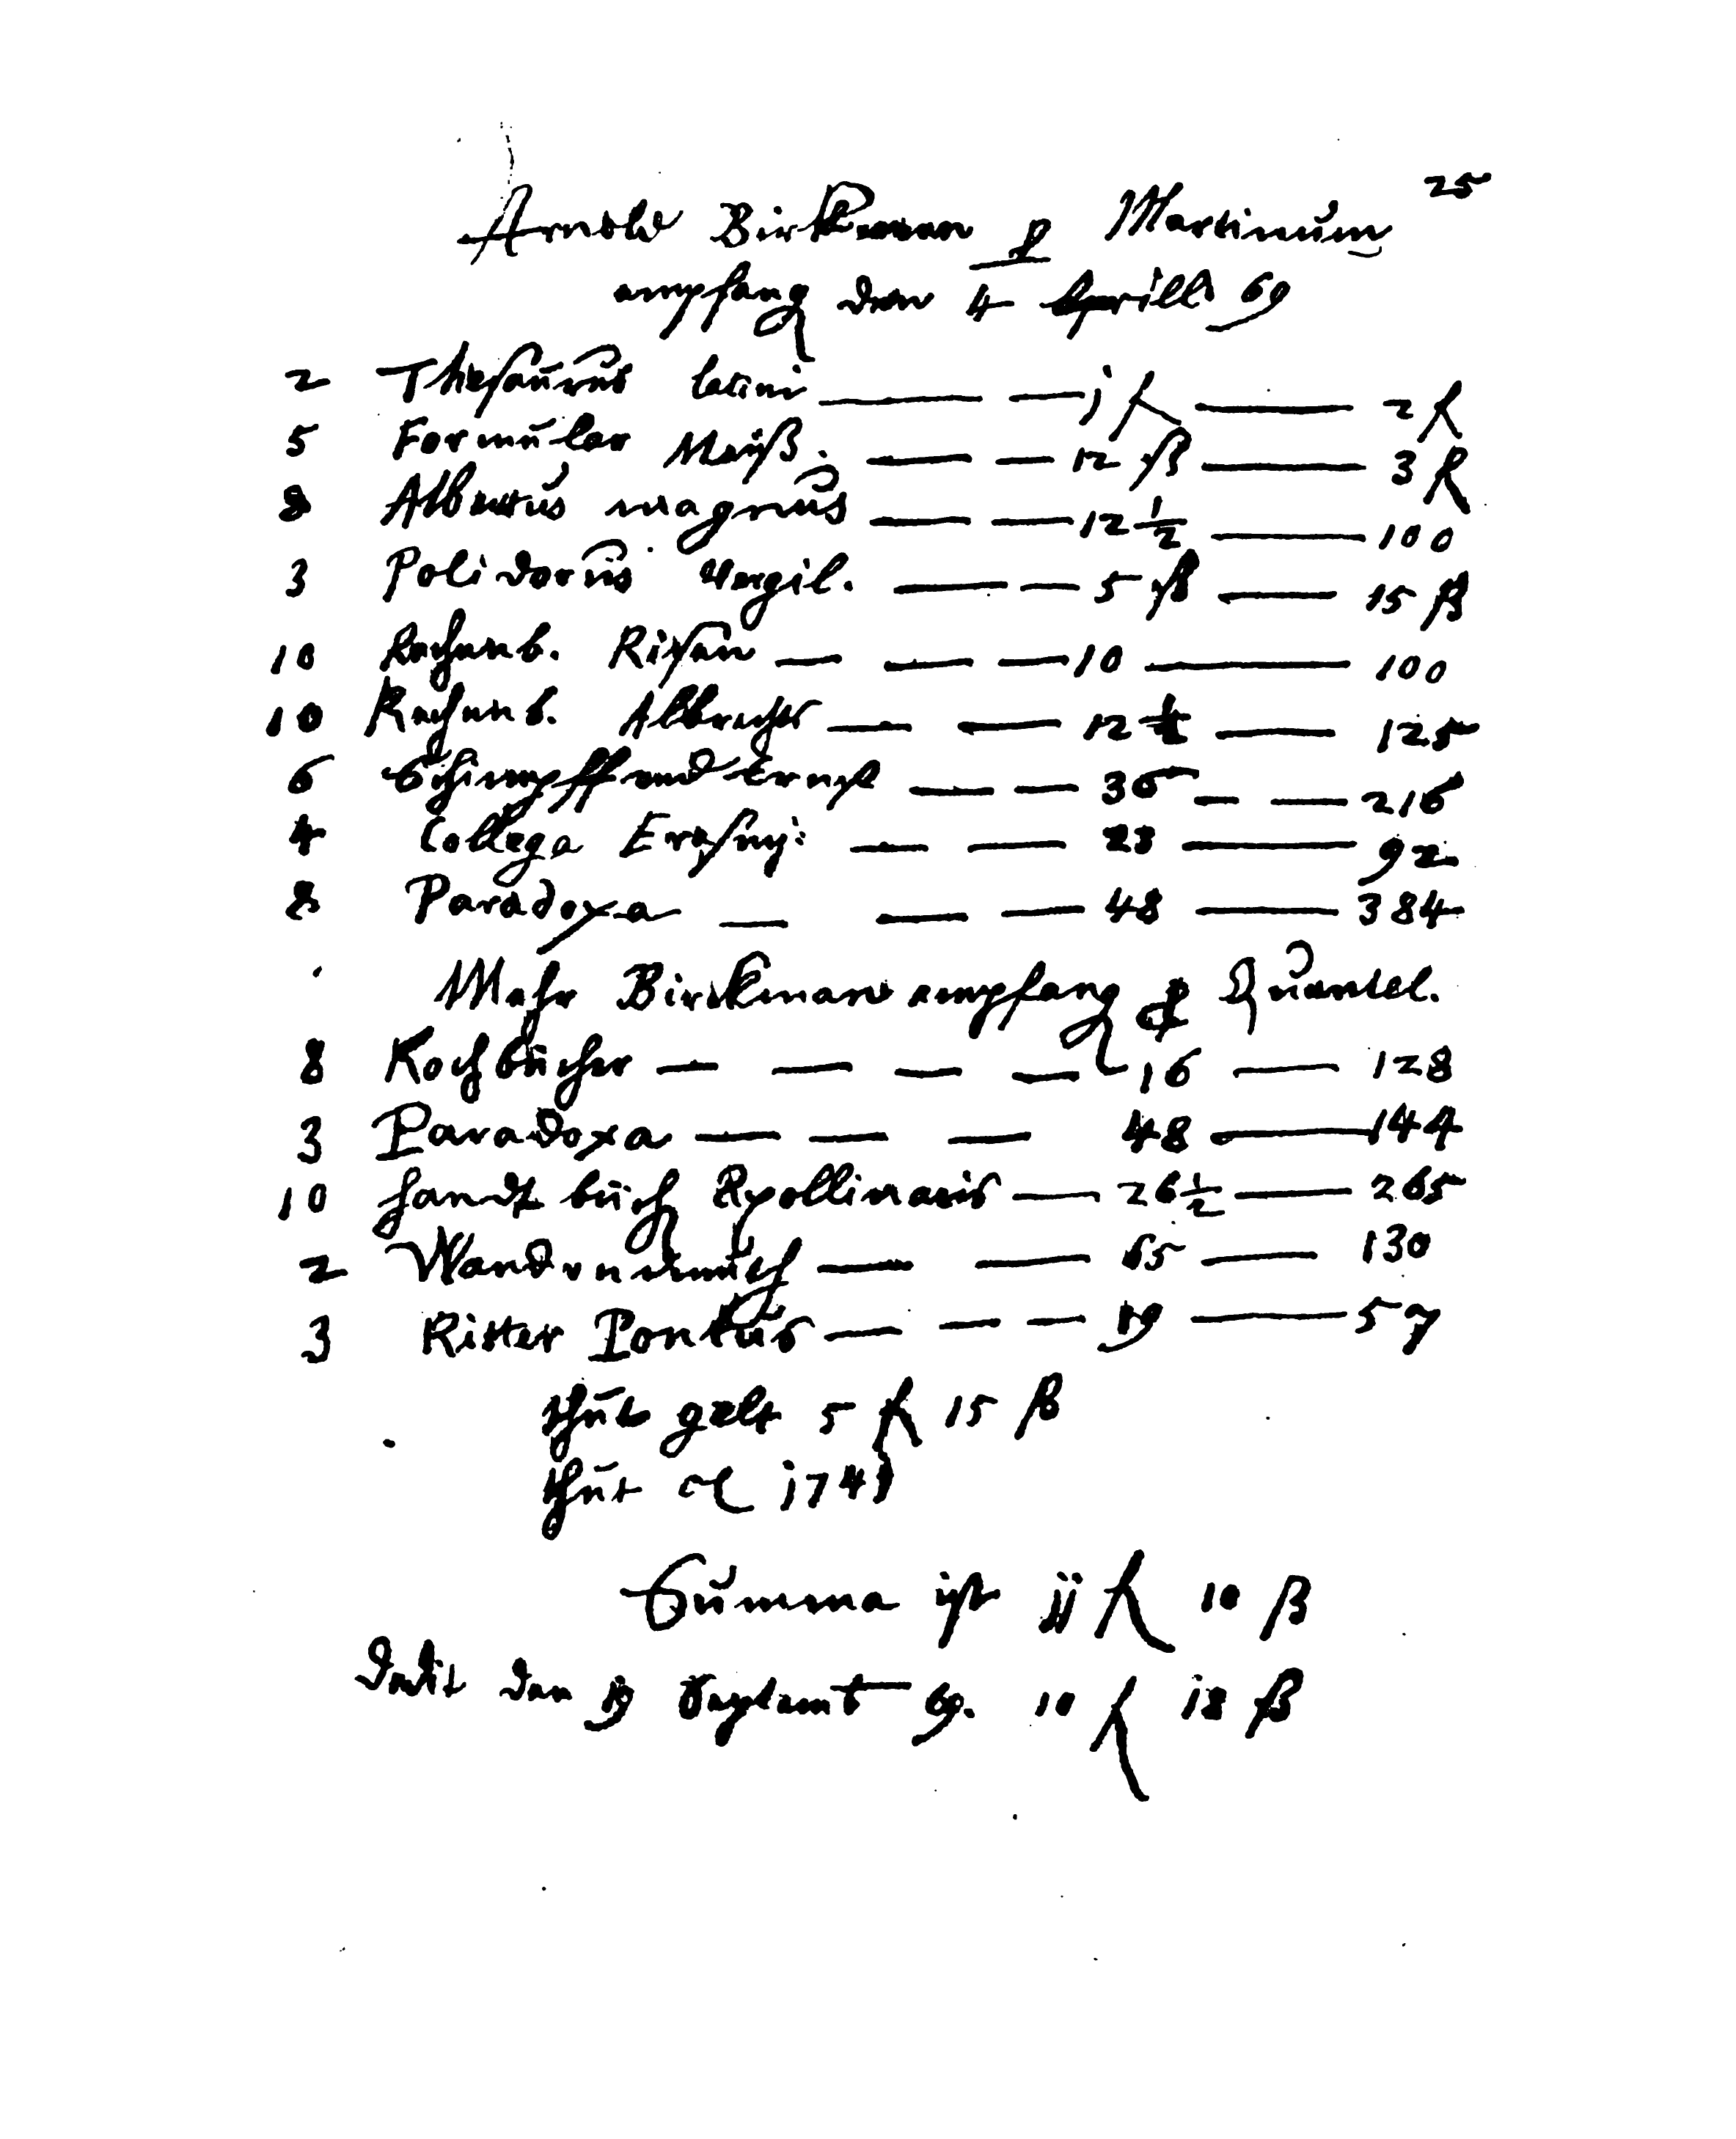 25
Arnold Birkman p Martinum
empfang den 4 Aprill 69
2 Thesaurus latini — — j fl — 2 fl
5 Formular Meiß. — — 12 ß — 3 fl
8 Albertus magnus — — 12 1/2 — 100
3 Polidorus Vergil. — — 5 ß — 15 ß
10 Rechenb. Risen — — — 10 — 100
10 Rechenb. Albrecht — — 12 1/2 — 125
6 Schimpff und Ernst — — 36 — — 216
4 Colloga Erasmj: — — 23 — 92
8 Paradoxa — — — 48 — 384
Mehr Birckman empfang p Quentel.
8 Kochbucher — — — — 16 — 128
3 Paradoxa — — — 48 — 144
10 Handtbuch Apollinaris — 26 1/2 — 265
2 — — 65 — 130
3 Ritter Pontus — — — 19 — 57
thut gelt 5 fl 15 ß
thut 1741
Summa ist jj fl 10 ß
Dedit den 19 Septemb 69. 10 fl 18 ß